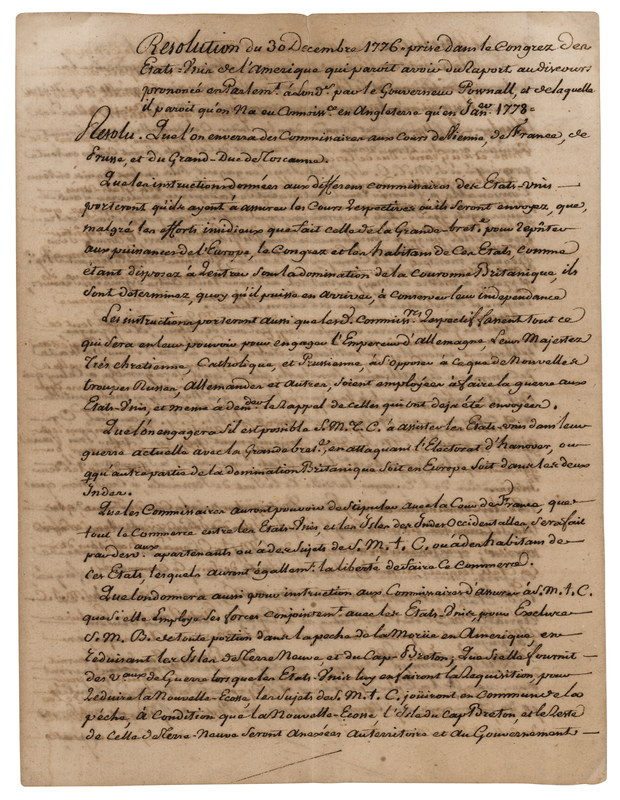 Resolution du 30 Decembre 1776 - prise dans le Congrez des
Etats-Unis de l'Amerique qui paroît avoir du Raport au discours
prononcé en Parlemt. à Londs. par le Gouverneur Pownall, et de laquelle
il paroît qu'on N'a eu Connissce. en Angleterre qu'en Janer. 1778 =
Resolu. Que l'on enverra des Commissaires aux Cours de Vienne, de France, de
Prusse, et du Grand-Duc de Toscanne.
Que les instructions données aux differens commissaires des Etats-Unis —
porteront qu'ils ayent à assurer les Cours Respectives où ils seront envoyez, que,
malgré les efforts insidieux que fait celle de la Grande-bretne. pour Repñter
aux puissances de l'Europe, le Congrez et les habitans de Ces Etats, comme
étant disposez à Rentrer sous la domination de la couronne Britanique, ils
sont determinez, quoy qu'il puisse en arriver, à conserver leur independance
Les instructions porteront aussi que lesd. Commissres. Respectifs fassent tout ce
qui sera en leur pouvoir pour engager l'Empereur d'Allemagne, Leurs Majestez
Très chretienne, Catholique, et Prussienne, à s'opposer à ce que de Nouvelles
troupes Russes, Allemandes et Autres, soient employées à faire la guerre aux
Etats-Unis, et meme à demder. le Rappel de celles qui ont deja été envoyées.
Que l'on engagera s'il est possible S. M. T. C. à assister les Etats-Unis dans leur
guerre actuelle avec la Grande bretne., en attaquant l'Electorat d'hanover, ou
qqu'autre partie de la domination Britanique soit en Europe soit dans les deux
Indes.
Que les Commissaires auront pouvoir de Stipuler avec la Cour de France, que
tout le Commerce entre les Etats-Unis, et les Isles des Indes Occidentalles, sera fait
par des vaux. apartenants ou à des Sujets de S. M. t. C. ou à des habitans de
ces Etats, lesquels auront égallemt. la liberté de faire Ce Commerce.
Que l'on donnera aussi pour instruction aux Commissaires d'assurer à S. M. t. C.
que si elle Employe ses forces conjointemt. avec les Etats-Unis, pour Exclure
S. M. B. de toute portion dans la peche de la Morüe en Amerique, en
Reduisant les Isles de Terre Neuve, et du Cap-Breton; Que si elle fournit —
des vaux. de Guerre lorsque les Etats-Unis luy en fairont la Requisition, pour
Reduire la Nouvelle-Ecosse, les Sujets de S. M. t. C. joüiront en Commun de la
pêche, à Condition que la Nouvelle-Ecosse l'Isle du cap Breton, et le Reste
de celle de Terre-Neuve seront Anexées au territoire et au Gouvernement —